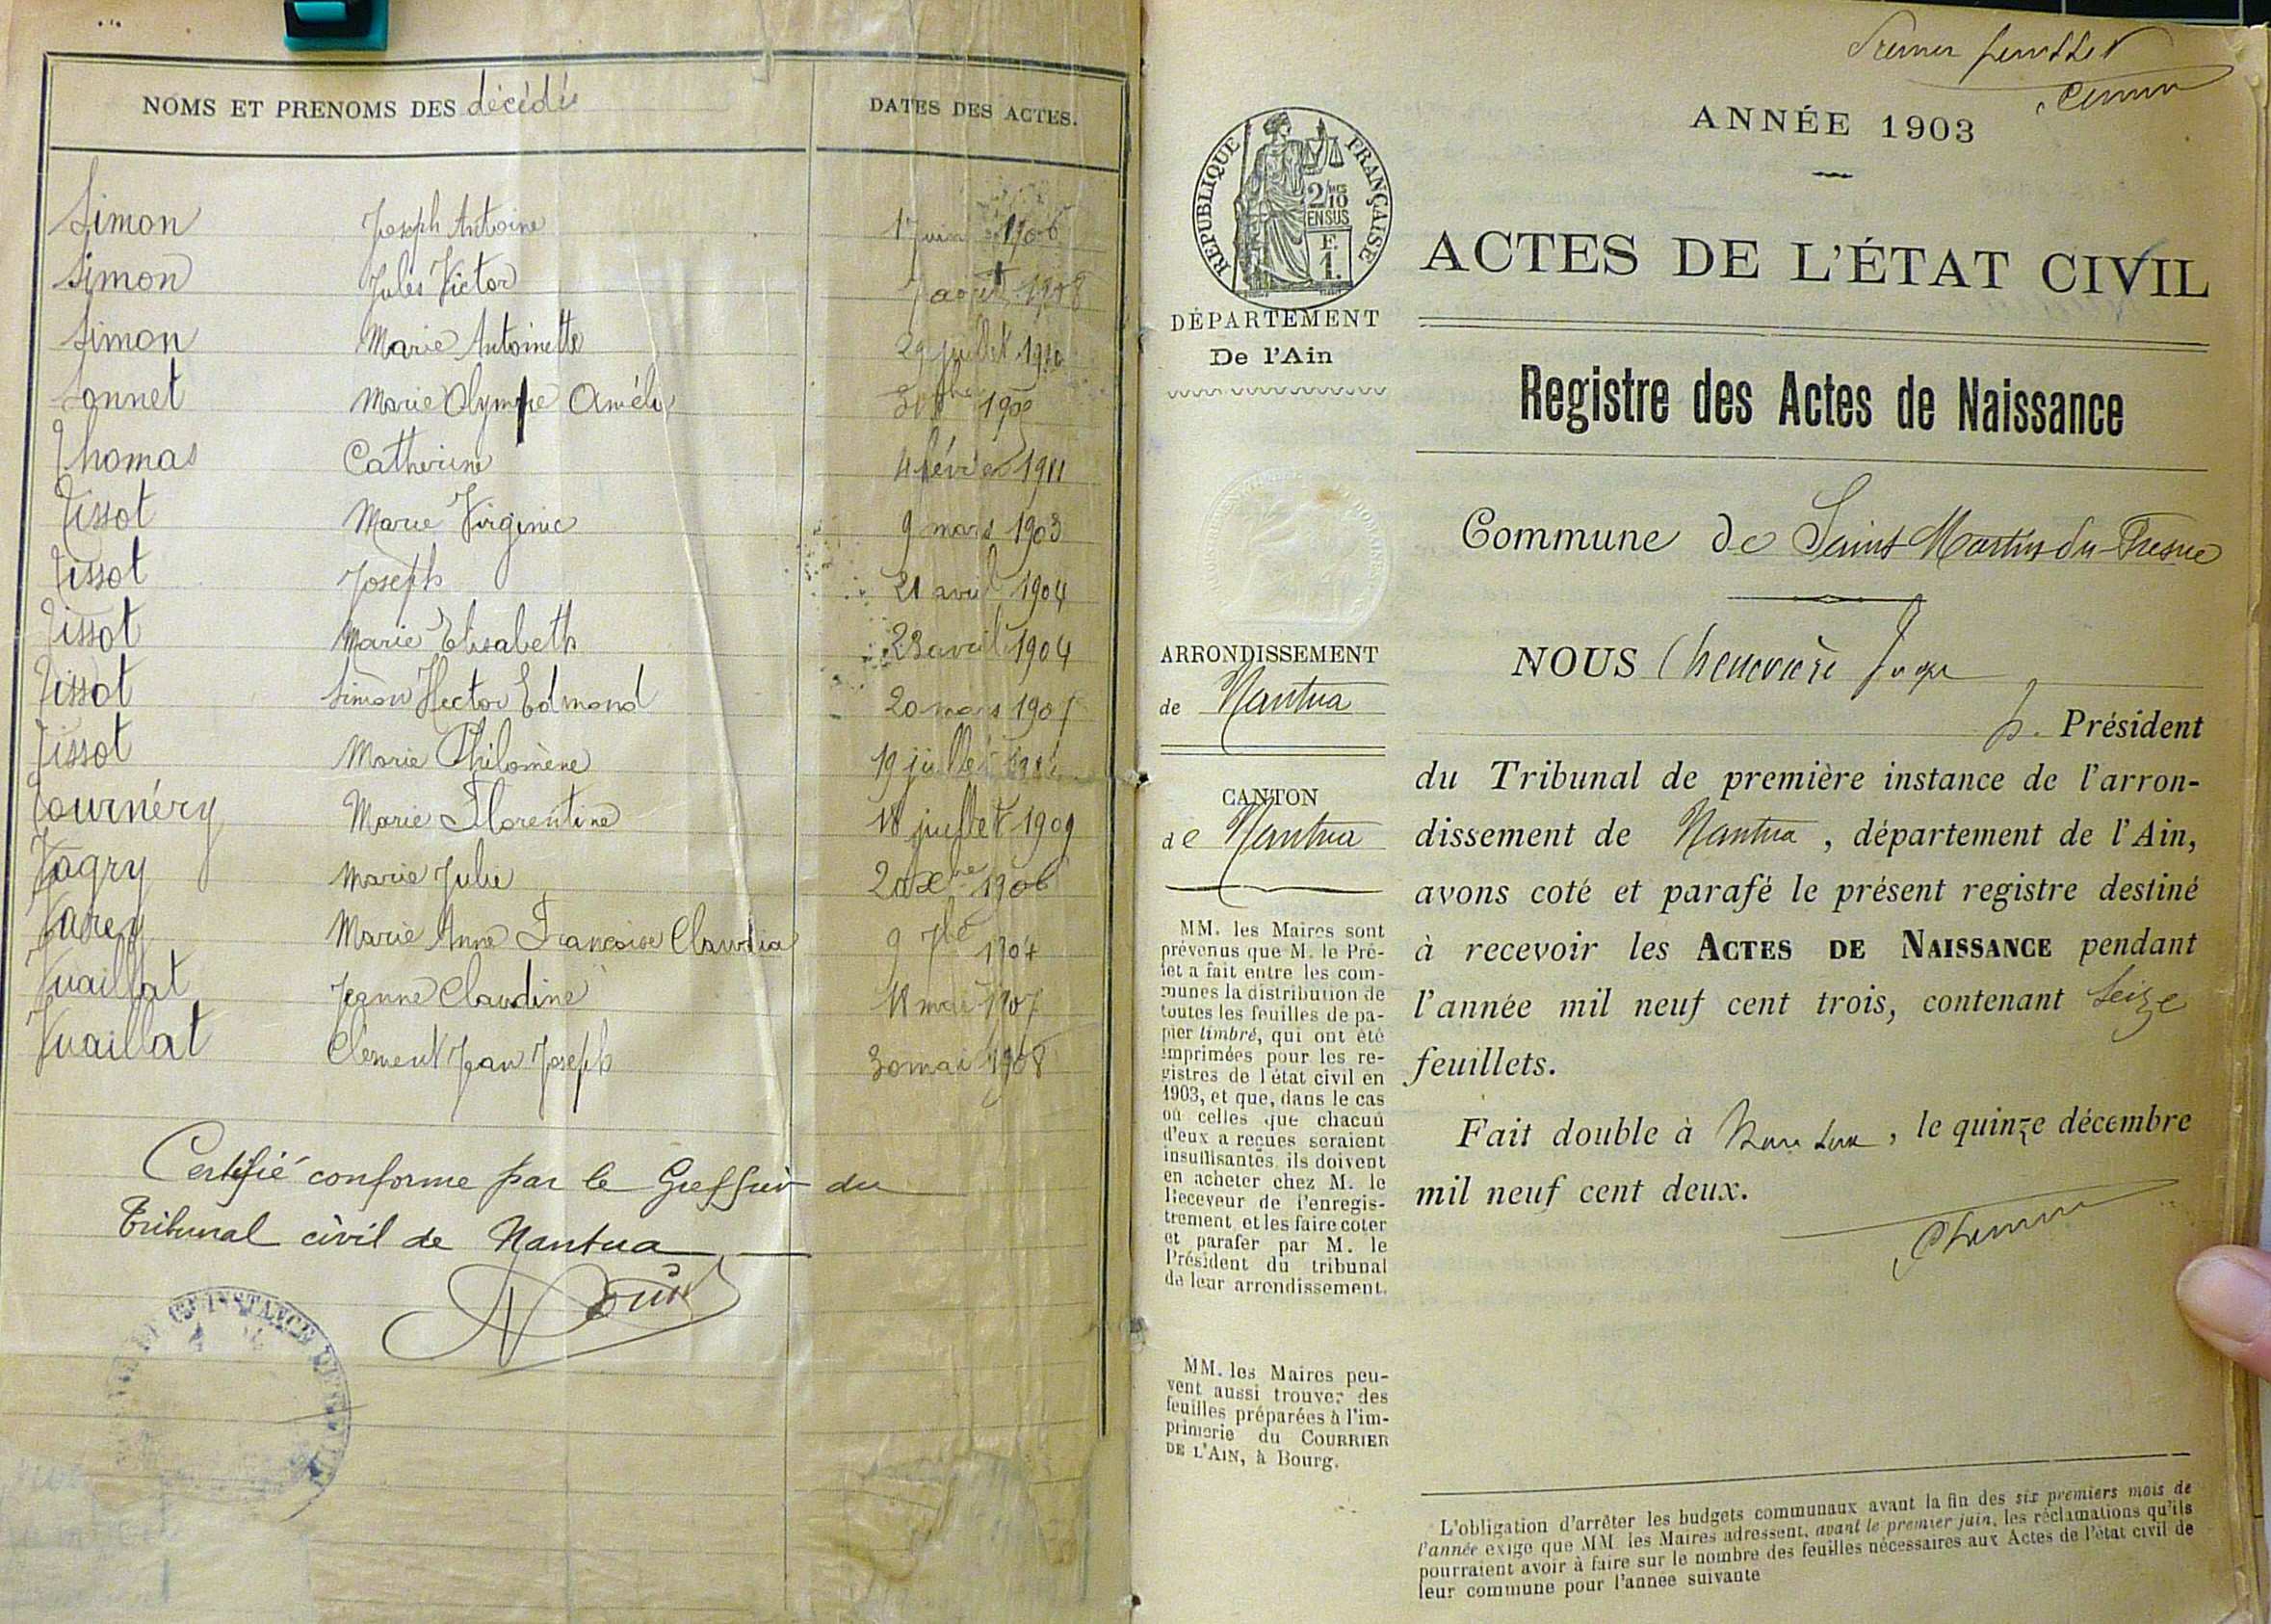 NOMS ET PRENOMS DES décédés
DATES DES ACTES.
Simon Joseph Antoine 1 juin 1906
Simon Jules Victor 7 août 1908
Simon Marie Antoinette 29 juillet 1910
Sonnet Marie Olympe Amélie
Thomas Catherine 4 février 1911
Tissot Marie Virginie 9 mars 1903
Tissot Joseph 21 avril 1904
Tissot Marie Elisabeth 23 avril 1904
Tissot Simon Hector Edmond 20 mars 1907
Tissot Marie Philomène 19 juillet
Tournéry Marie Florentine 18 juillet 1909
Vagry Marie Julie 20 Xbre 1906
Varey Marie Anne Françoise Claudia 9 7bre 1904
Vuaillat Jeanne Claudine 18 mai 1907
Vuaillat Clément Jean Joseph 30 mai 1908
Certifié conforme par le Greffier du
Tribunal civil de Nantua
Premier feuillet
ANNÉE 1903
RÉPUBLIQUE FRANÇAISE
2/10
EN SUS
F.
1.
ACTES DE L'ÉTAT CIVIL
DÉPARTEMENT
De l'Ain
Registre des Actes de Naissance
Commune de Saint Martin du Fresne
ARRONDISSEMENT
de Nantua
CANTON
de Nantua
MM. les Maires sont
prévenus que M. le Pré-
fet a fait entre les com-
munes la distribution de
toutes les feuilles de pa-
pier timbré, qui ont été
imprimées pour les re-
gistres de l'état civil en
1903, et que, dans le cas
où celles que chacun
d'eux a reçues seraient
insuffisantes, ils doivent
en acheter chez M. le
Receveur de l'enregis-
trement et les faire coter
et parafer par M. le
Président du tribunal
de leur arrondissement.
MM. les Maires peu-
vent aussi trouver des
feuilles préparées à l'im-
primerie du COURRIER
DE L'AIN, à Bourg.
NOUS Chenevière Juge
p. Président
du Tribunal de première instance de l'arron-
dissement de Nantua, département de l'Ain,
avons coté et parafé le présent registre destiné
à recevoir les ACTES DE NAISSANCE pendant
l'année mil neuf cent trois, contenant seize
feuillets.
Fait double à Nantua, le quinze décembre
mil neuf cent deux.
L'obligation d'arrêter les budgets communaux avant la fin des six premiers mois de
l'année exige que MM. les Maires adressent, avant le premier juin, les réclamations qu'ils
pourraient avoir à faire sur le nombre des feuilles nécessaires aux Actes de l'état civil de
leur commune pour l'année suivante